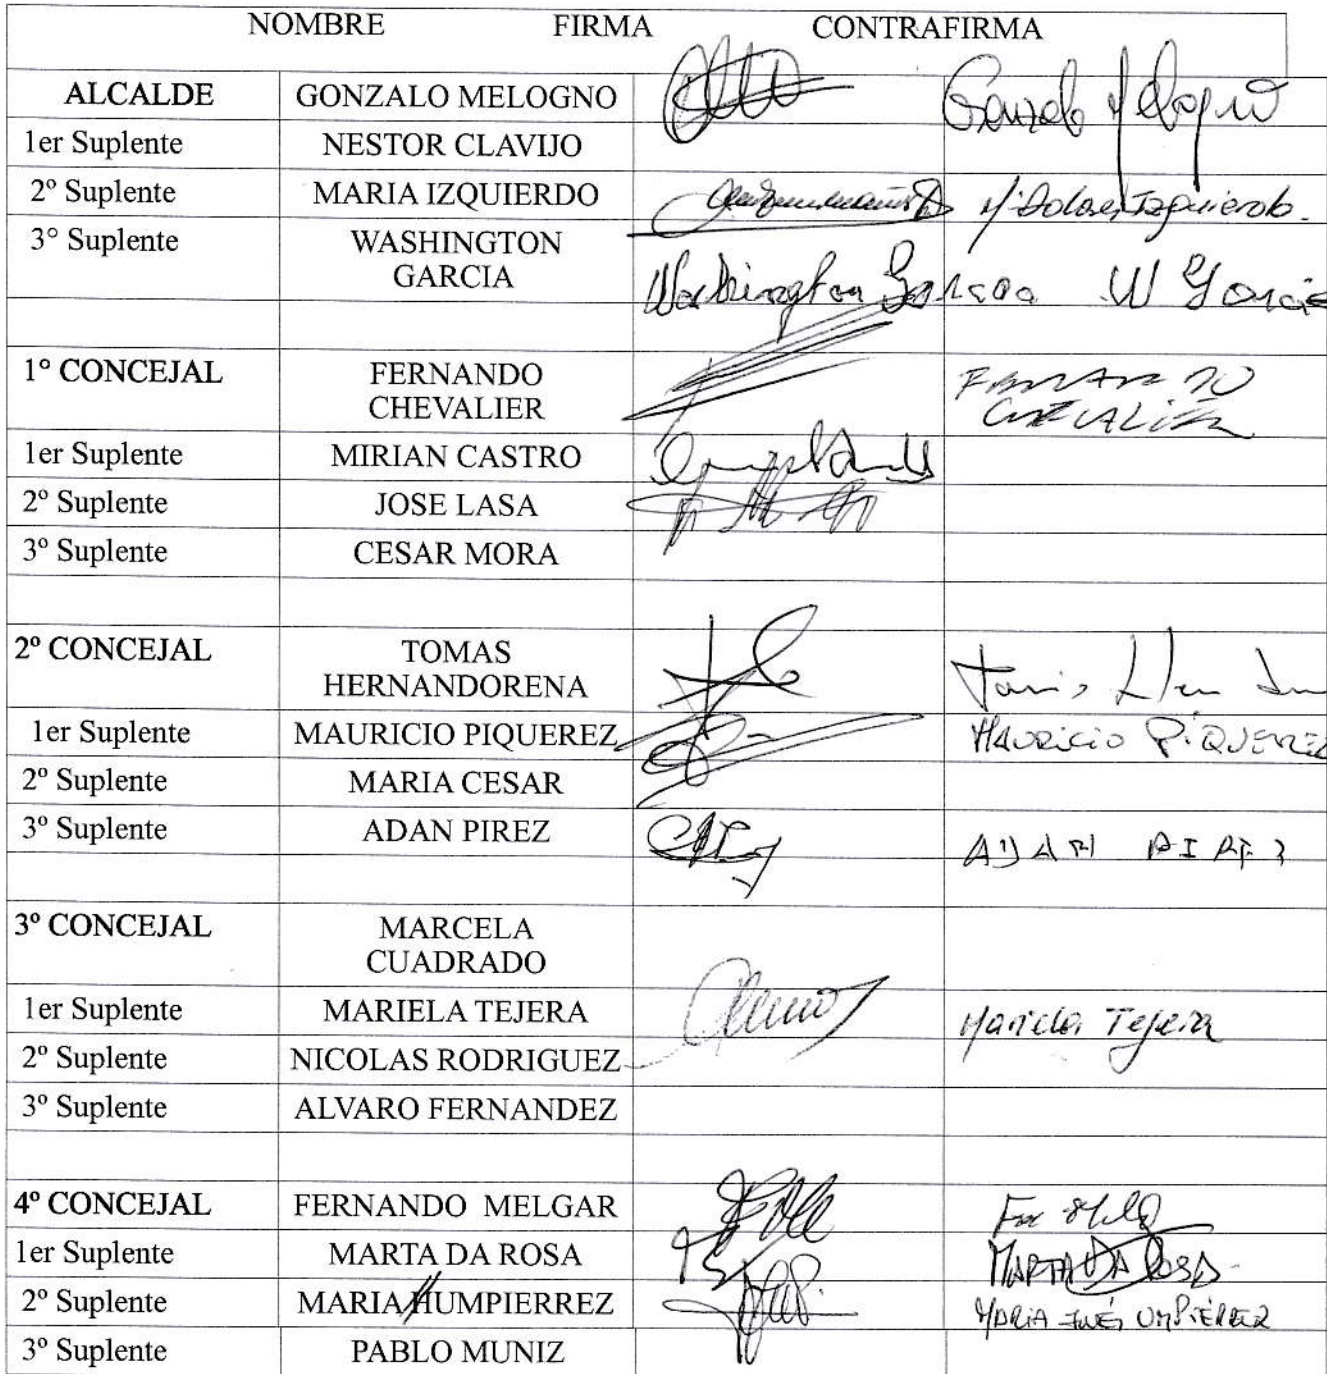 NOMBRE FIRMA CONTRAFIRMA
ALCALDE GONZALO MELOGNO Gonzalo Melogno
1er Suplente NESTOR CLAVIJO
2º Suplente MARIA IZQUIERDO Mª Dolores Izquierdo.
3° Suplente WASHINGTON
GARCIA Washington Garcia W Garcia
1º CONCEJAL FERNANDO FERNANDO
CHEVALIER CHEVALIER
1er Suplente MIRIAN CASTRO
2º Suplente JOSE LASA
3º Suplente CESAR MORA
2º CONCEJAL TOMAS
HERNANDORENA
1er Suplente MAURICIO PIQUEREZ MAURICIO PIQUEREZ
2º Suplente MARIA CESAR
3º Suplente ADAN PIREZ ADAN PIREZ
3º CONCEJAL MARCELA
CUADRADO
1er Suplente MARIELA TEJERA Mariela Tejera
2º Suplente NICOLAS RODRIGUEZ
3º Suplente ALVARO FERNANDEZ
4º CONCEJAL FERNANDO MELGAR
1er Suplente MARTA DA ROSA MARTA DA ROSA
2º Suplente MARIA HUMPIERREZ MARIA INÉS UMPIÉRREZ
3º Suplente PABLO MUNIZ